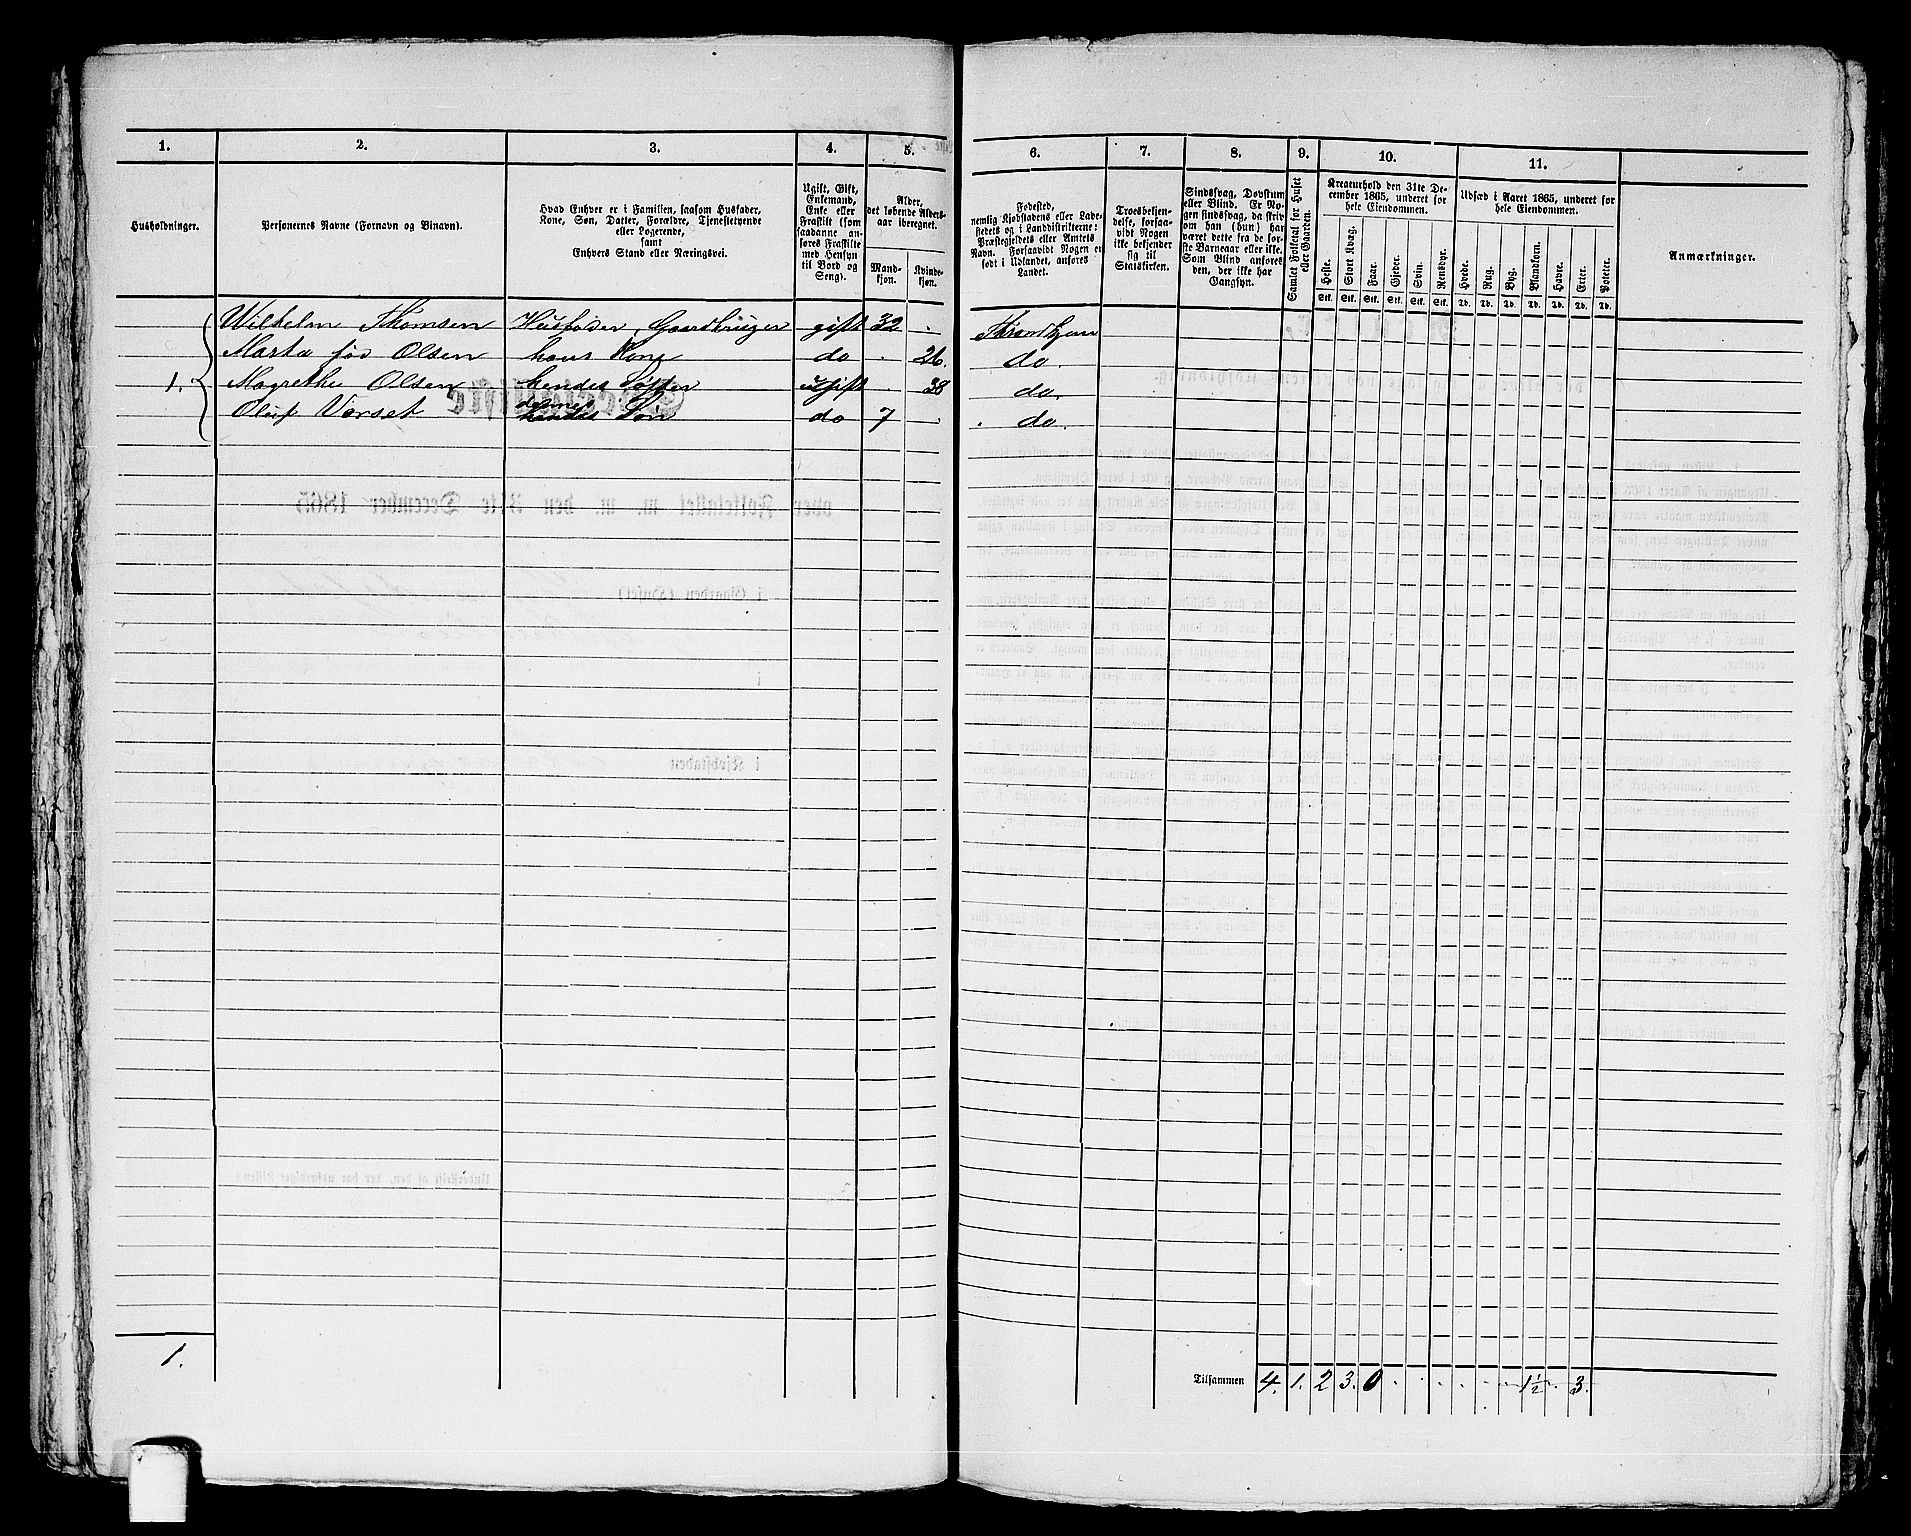 1. 2. 3. 4. 5. 6. 7. 8. 9. 10. 11.
Husholdninger.
Personernes Navne (Fornavn og Binavn).
Hvad Enhver er i Familien, saasom Husfader,
Kone, Søn, Datter, Forældre, Tjenestetyende
eller Logerende,
samt
Enhvers Stand eller Næringsvei.
Ugift, Gift,
Enkemand,
Enke eller
Fraskilt (som
saadanne an-
føres Fraskilte
med Hensyn
til Bord og
Seng).
Alder,
det løbende Alders-
aar iberegnet.
Mand-
kjøn.
Kvinde-
kjøn.
Fødested,
nemlig Kjøbstadens eller Lade-
stedets og i Landdistrikterne:
Præstegjeldets eller Amtets
Navn. Forsaavidt Nogen er
født i Udlandet, anføres
Landet.
Troesbekjen-
delse, forsaa-
vidt Nogen
ikke bekjender
sig til
Statskirken.
Sindssvag, Døvstum
eller Blind. Er No-
gen sindssvag, da skriv
om han (hun) har
været dette fra de før-
ste Barneaar eller ikke.
Som Blind anføres
den, der ikke har
Gangsyn.
Samlet Folketal for Huset
eller Gaarden.
Kreaturhold den 31te De-
cember 1865, underet for
hele Eiendommen.
Heste. Stort Kvæg. Faar. Gjeder. Svin. Rensdyr.
Stk. Stk. Stk. Stk. Stk. Stk.
Udsæd i Aaret 1865, underet for
hele Eiendommen.
Hvede. Rug. Byg. Blandkorn. Havre. Erter. Poteter.
Td. Td. Td. Td. Td. Td. Td.
Anmærkninger.
Wilhelm Thomsen Husfader, Gaardbruger gift 32 Throndhjem
Marta fød Olsen hans Kone do 26. do.
1. Magrethe Olsen hendes Søster ugift 38 do.
Oluf Vorset dennes Søn do 7 do.
1.
Tilsammen 4. 1. 2 3. 0 1½. 3.